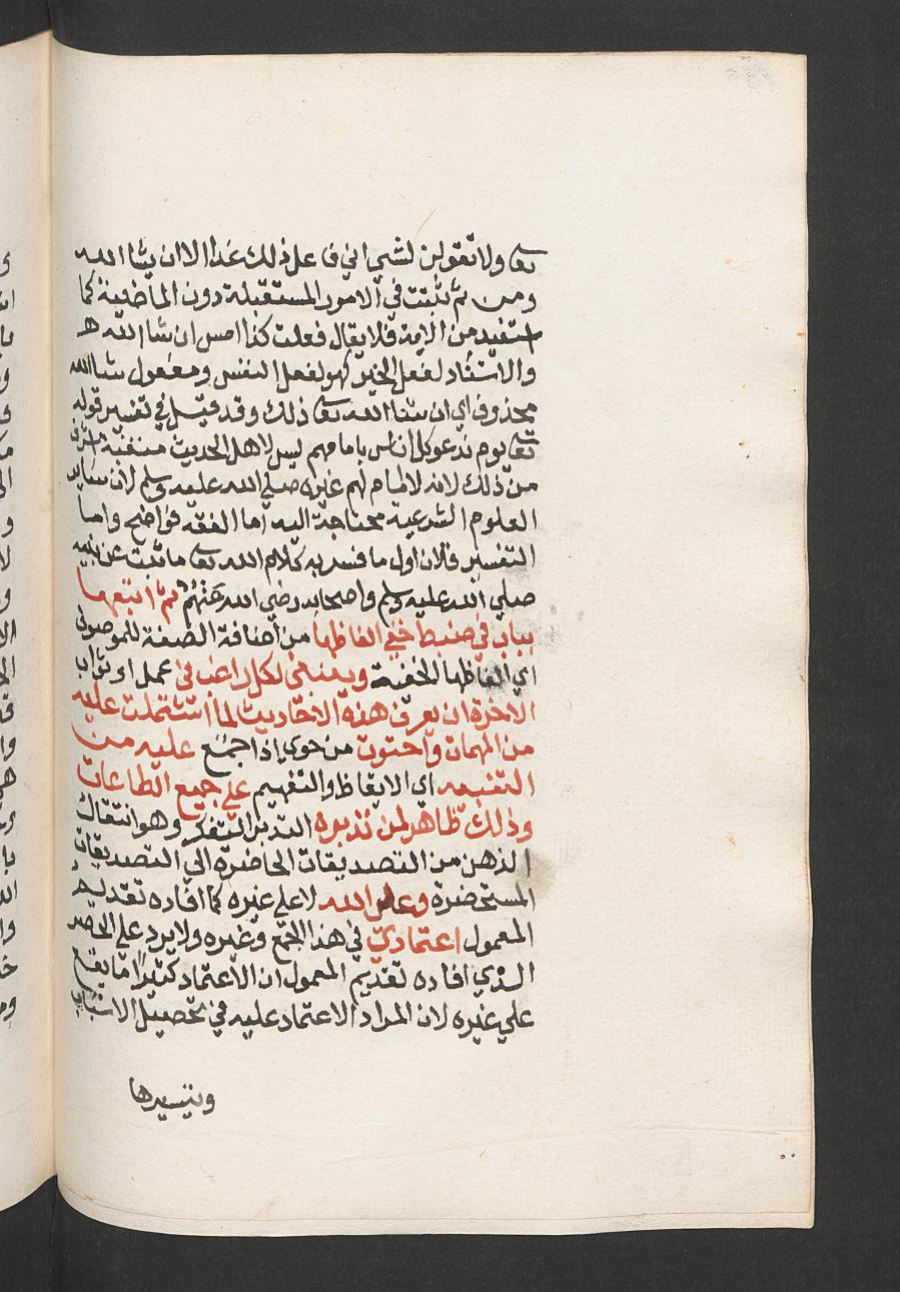 تعا ولا تقولن لشي اني فاعل ذلك غدا الا ان يشا الله
ومن ثم تثبت في الامور المستقبلة دون الماضية كما
استفيد من الاية فلا يقال فعلت كذا امس ان شا الله
والاسناد لفعل الخير كهو لفعل النفس ومفعول شا الله
محذوف اي ان شا الله تعا ذلك وقد قيل في تفسير قوله
تعا يوم ندعو كل اناس بامامهم ليس لاهل الحديث منقبة اشرف
من ذلك لانه لا امام لهم غيره صلي الله عليه وسلم لان ساير
العلوم الشرعية محتاجة اليه اما الفقه فواضح واما
التفسير فلان اول ما فسر به كلام الله تعا ما ثبت عن نبيه
صلي الله عليه وسلم واصحابه رضي الله عنهم ثم اتبعها
بباب في ضبط خفي الفاظها من اضافة الصفة للموصوف
اي الفاظها الخفية وينبغي لكل راغب في عمل او ثواب
الاخرة ان يعرف هذه الاحاديث لما اشتملت عليه
من المهمات واحتوت من حوي اذا جمع عليه من
التنبيه اي الايقاظ والتفهيم علي جميع الطاعات
وذلك ظاهر لمن تدبره التدبر التفكر وهو انتقال
الذهن من التصديقات الحاضرة الي التصديقات
المستحضرة وعلي الله لا علي غيره كما افاده تقديم
المعمول اعتمادي في هذا الجمع وغيره ولا يرد علي الحصر
الذي افاده تقديم المعمول ان الاعتماد كثيرا ما يقع
علي غيره لان المراد الاعتماد عليه في تحصيل الاسباب
وتيسيرها